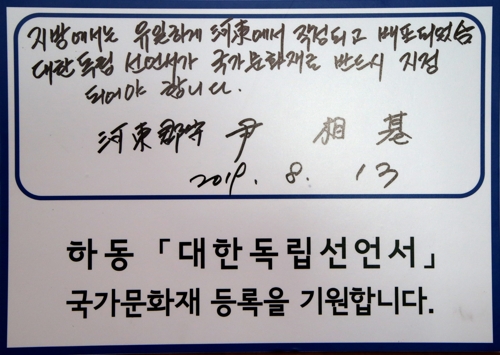 지방에서는 유일하게 河東에서 작성되고 배포되었슴
대한독립 선언서가 국가문화재로 반드시 지정
되어야 합니다.
河東郡守 尹 相 基
2019. 8. 13
하동 「대한독립선언서」
국가문화재 등록을 기원합니다.